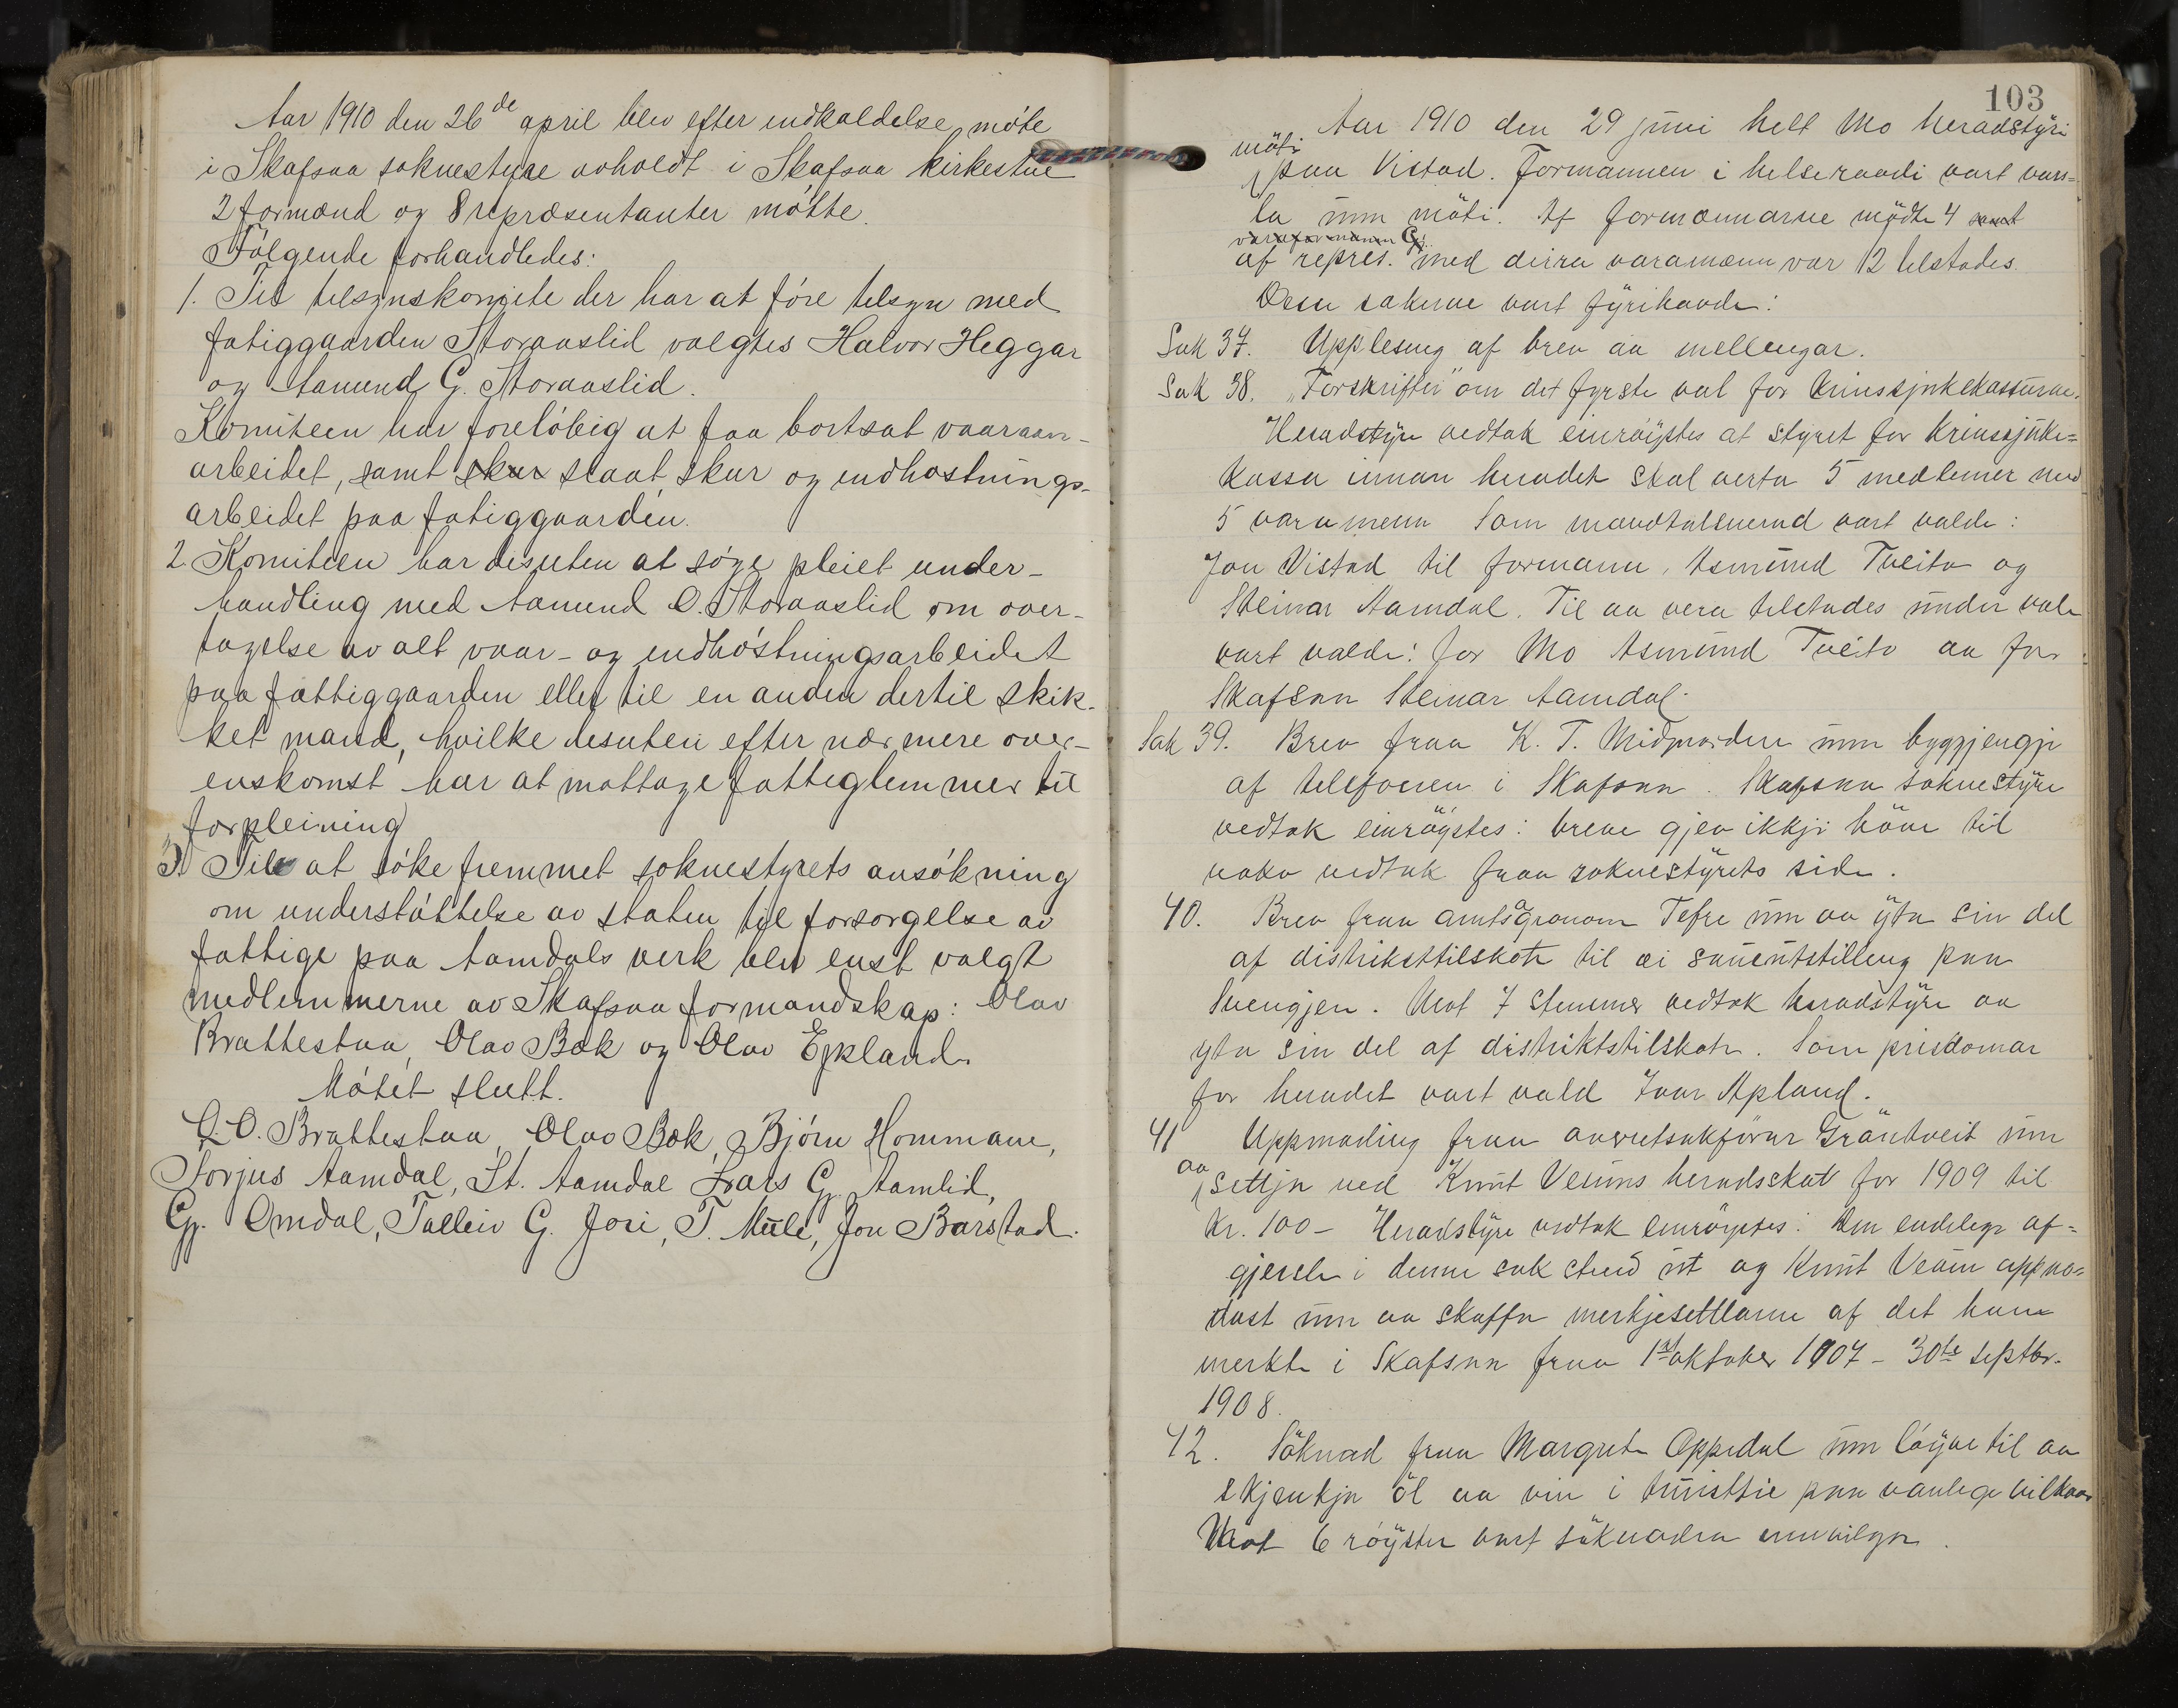 Aar 1910 den 26de april blev efter indkaldelse møte
i Skafsaa soknestyre avholdt i Skafsaa kirkestue
2 formænd og 8 repræsentanter møtte.
Følgende forhandledes:
1. Til tilsynskomite der har at føre tilsyn med
fatiggaarden Storaaslid valgtes Halvor Heggar
og Aamund G. Storaaslid.
Komiteen har foreløbig at faa bortsat vaaraan-
arbeidet, samt skur slaat, skur og indhøstnings-
arbeidet paa fatiggaarden.
2. Komiteen har desuten at søge pleiet under-
handling med Aamund O. Storaaslid om over-
tagelse av alt vaar- og indhøstningsarbeidet
paa fattiggaarden eller til en anden dertil skik-
ket mand, hvilke desuten efter nærmere over-
enskomst har at mottage fattiglemmer til
forpleining
3. Til at søke fremmet soknestyrets ansøkning
om understøttelse av staten til forsorgelse av
fattige paa Aamdals verk blev enst. valgt
medlemmerne av Skafsaa formandskap: Olav
Brattestaa, Olav Bøk og Olav Eikland.
Møtet slutt.
O. O. Brattestaa, Olav Bøk, Bjørn Hommane,
Torjus Aamdal, St. Aamdal Lars G. Aamlid,
Gj. Omdal, Talleiv G. Jore, T. Mule, Jon Barstad.
103
Aar 1910 den 29 juni helt Mo heradstyri
møti
paa Vistad. Formannen i helseraadi vart vars=
la um møti. Af formennarne mødte 4 samt
varaformann Gj.
af repres. med deira varamenn var 12 tilstades.
Desse sakerne vart fyrihavde:
Sak 37. Upplesing af brev aa mellengar.
Sak 38. "Forskrifter" om det fyrste val for krinssjukekassurne.
Heradstyre vedtok einrøystes at styret for krinssjuke=
kassa innan heradet skal verta 5 medlemer med
5 varamenn Som mandtalsnemd vart valde:
Jon Vistad til formann, Asmund Tveito og
Steinar Aamdal. Til aa vera tilstades under vale
vart valde: for Mo Asmund Tveito aa for
Skafsaa Steinar Aamdal.
Sak 39. Brev fraa K. T. Midgarden um byggjengje
af telefonen i Skafsaa. Skafsaa soknestyre
vedtok einrøystes: breve gjev ikkji høve til
noko vedtak fraa soknestyrets side.
40. Brev fraa amtsagronom Tefre um aa yta sin del
af distrikstilskote til ei saueutstilling paa
Svengjen. Mot 7 stemmer vedtok heradstyre aa
yta sin del af distriktstilskote. Som prisdomar
for heradet vart vald Ivar Apland.
41 Uppmoding fraa overretsakførar Grauntveit um
aa
setja ned Knut Veums heradsskat for 1909 til
Kr. 100 - Heradstyre vedtok einrøystes: Den endelege af=
gjerslei denne sak stend ut og Knut Veum uppmo=
dast um aa skaffa merkjesetlarne af det han
merkte i Skafsaa fraa 1st oktober 1907 - 30te septbr.
1908.
42. Søknad fraa Margrete Oppedal um løyve til aa
skjenkja øl aa vin i turisttie paa vanlege vilkaar
Mot 6 røyster vart søknaden innvilga.